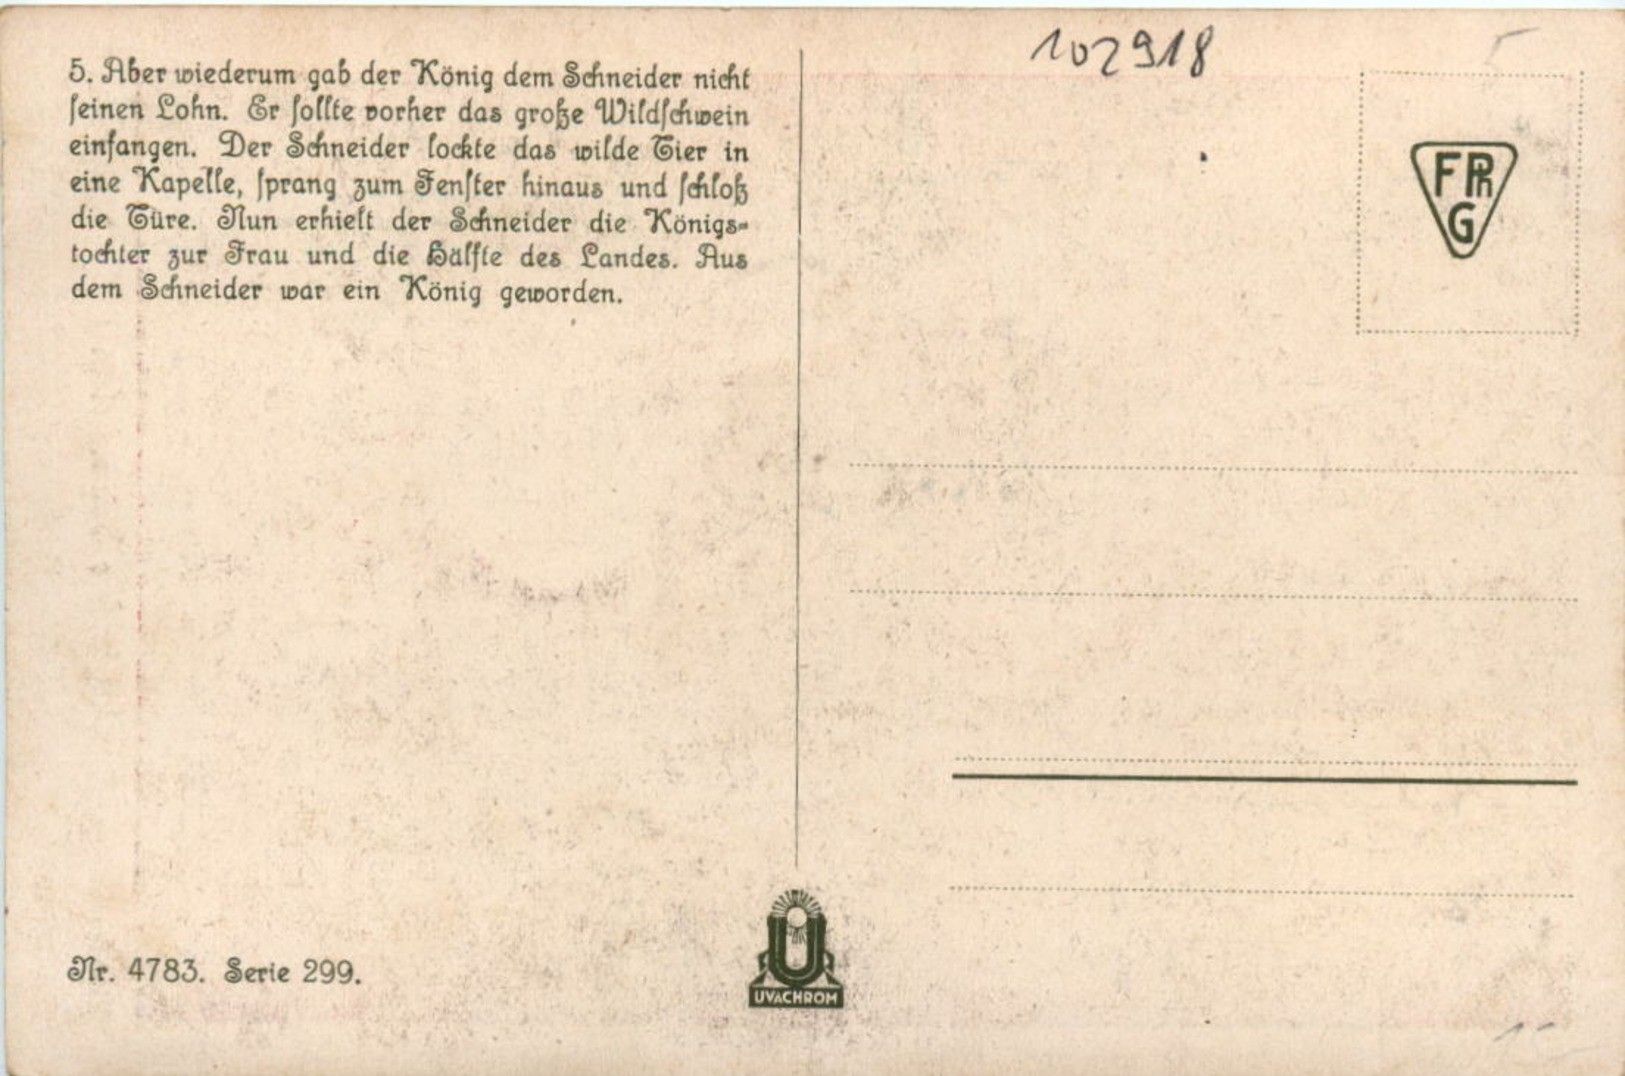 102918
5. Aber wiederum gab der König dem Schneider nicht
seinen Lohn. Er sollte vorher das große Wildschwein
einfangen. Der Schneider lockte das wilde Tier in
eine Kapelle, sprang zum Fenster hinaus und schloß
die Türe. Nun erhielt der Schneider die Königs-
tochter zur Frau und die Hälfte des Landes. Aus
dem Schneider war ein König geworden.
FPh
G
Nr. 4783. Serie 299.
U
UVACHROM